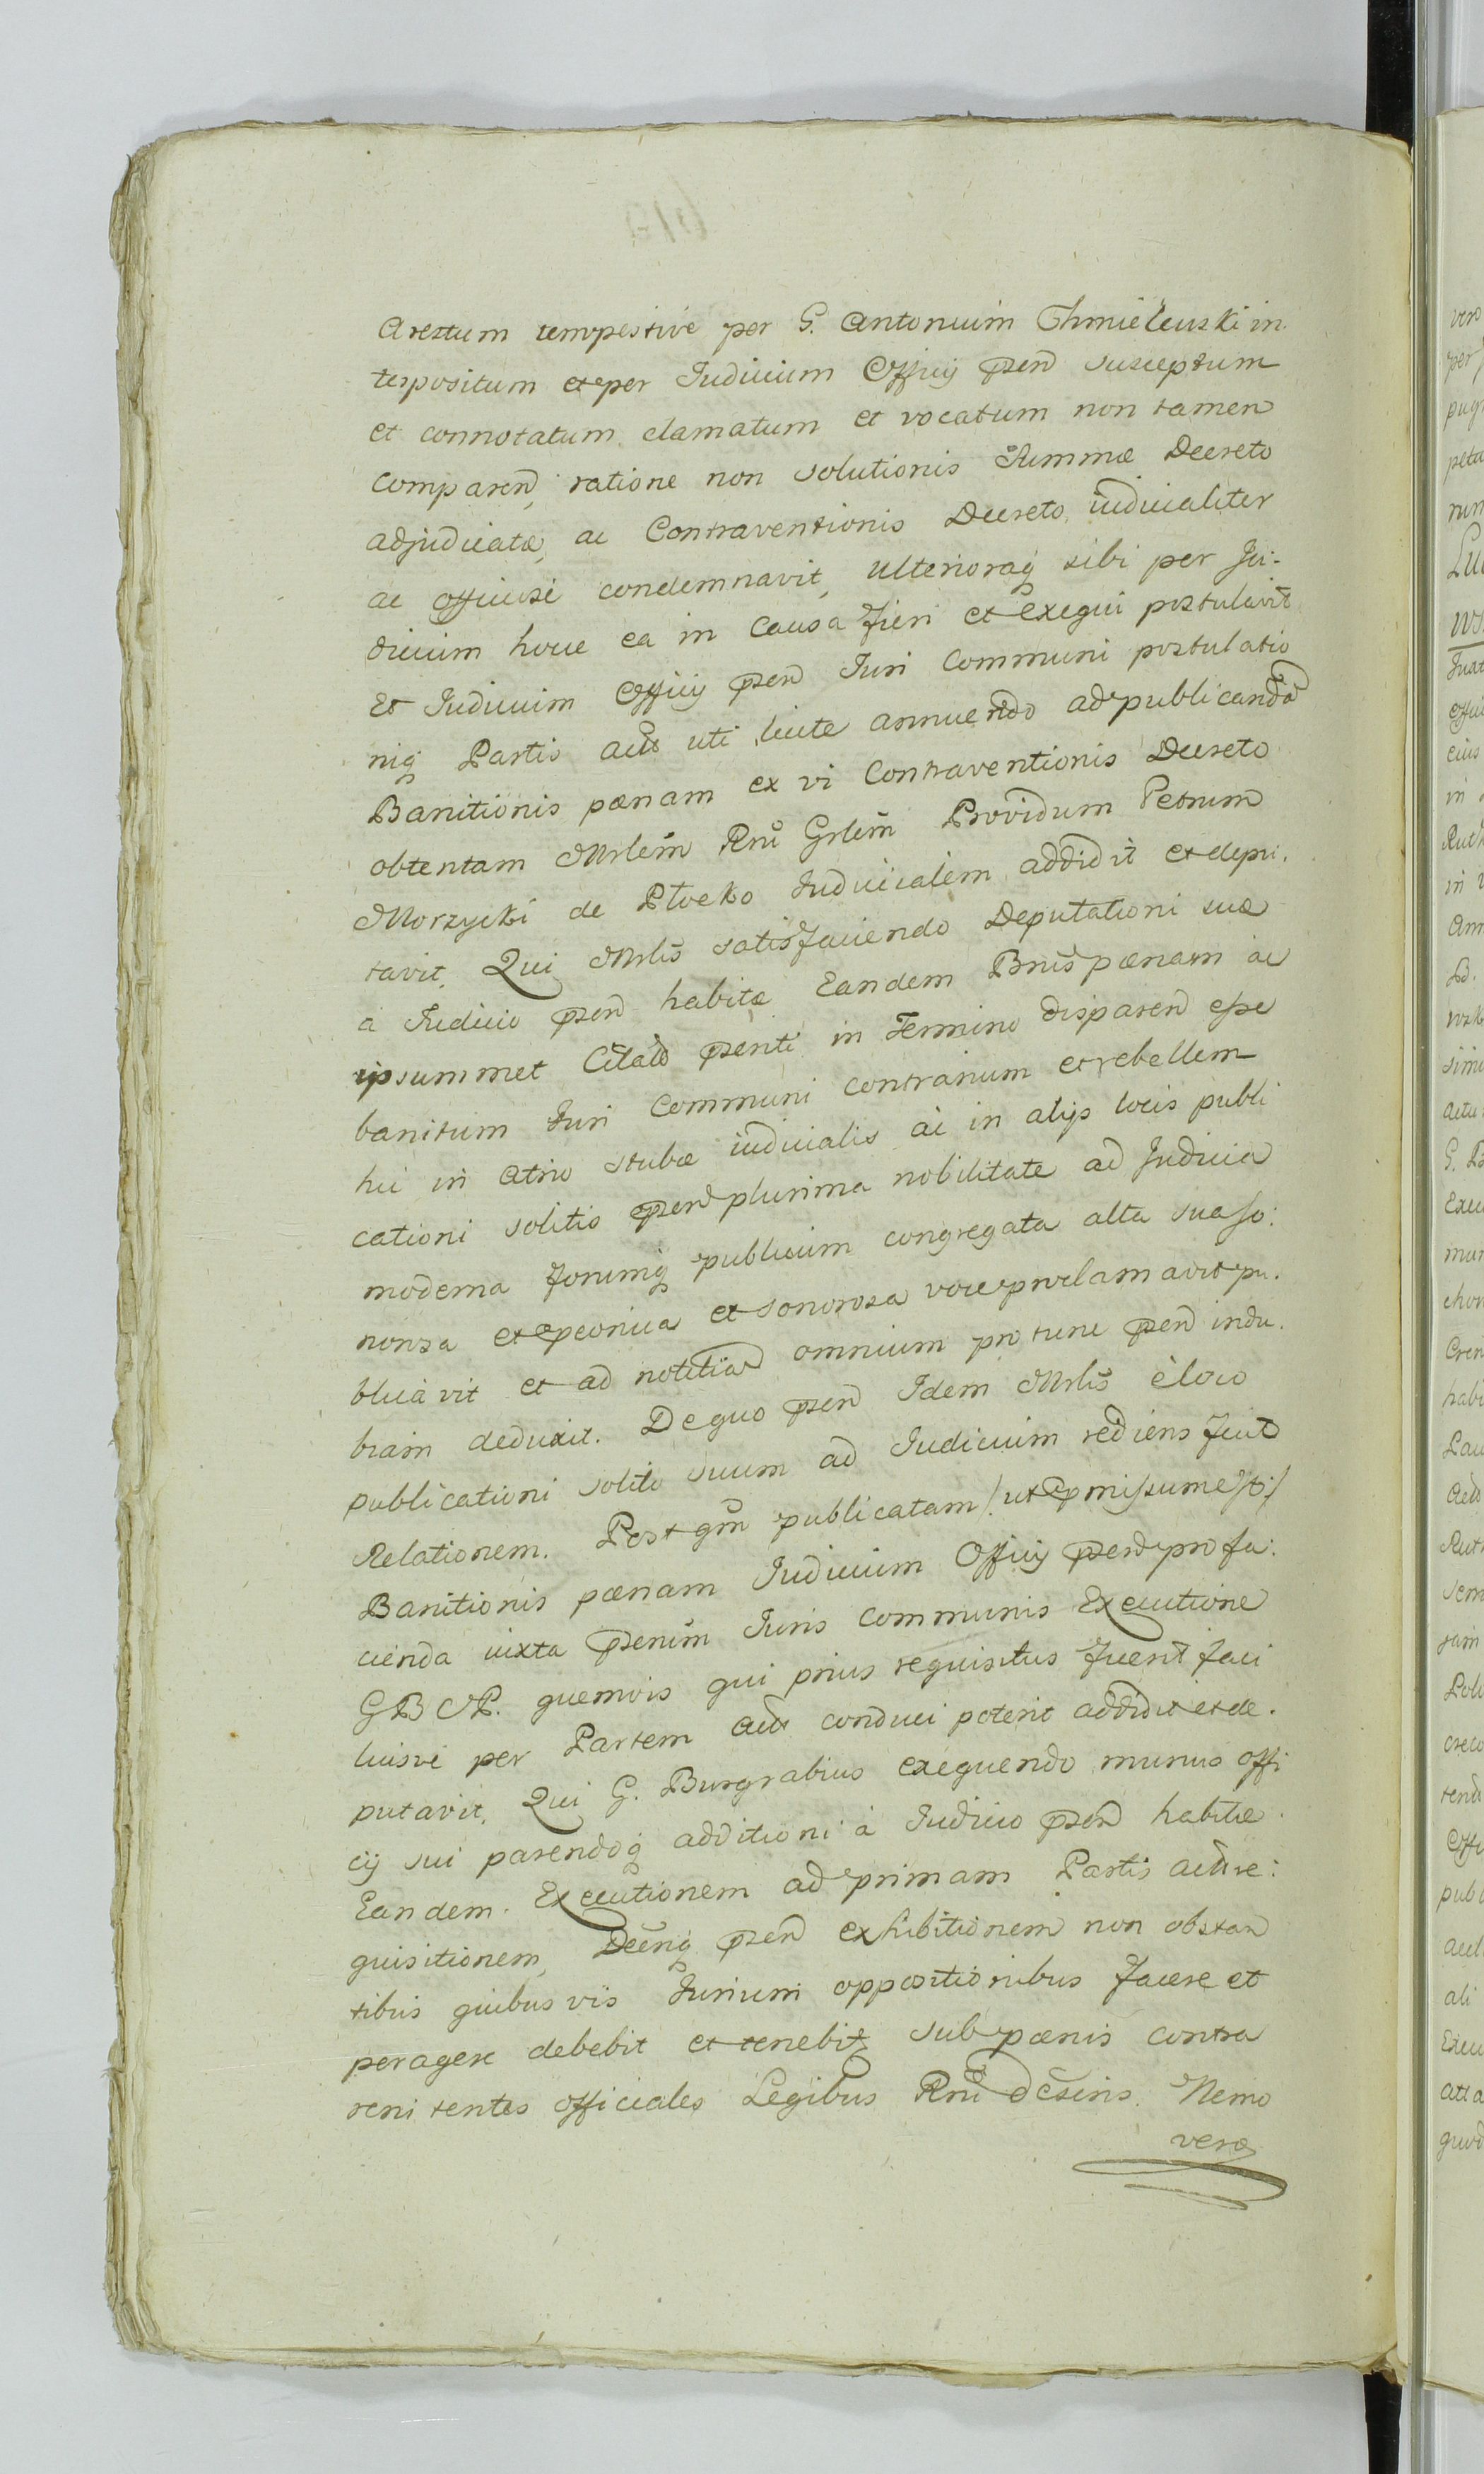 Arestum tempestive per G. Antonium Chmielewski in.
terpositum et per Iudicium Officij pñ susceptum
et connotatum, clamatum et vocatum non tamen
comparen, ratione non solutionis Summæ Decreto
adjudicatæ, ac Contraventionis Decreto, iudicialiter
ac officiose condemnavit, ulterioraq sibi per Ju:
dicium hocce ea in causa fieri et exequi postulavit
Et Iudicium Officij pñ Iuri Communi postulatio
niq Partis act uti licite annuendo ad publicandã
Banitionis pœnam ex vi Contraventionis Decreto
obtentam Mrlem Rni Grlem Providum Petrum
Morzycki de Plocko Iudicialem addidit et depu.
tavit. Qui Mrlis satisfaciendo Deputationi suæ
a Iudicio pñ habitæ Eandem Bnis pœnam ac
ipsummet Citatũ pñti in Termino disparen esse
banitum Iuri Communi contrarium et rebellem
hic in Atrio stubæ iudicialis ac in alijs locis publi
cationi solitis pñ plurima nobilitate ad Judicia
moderna forumq publicum congregata alta suaso:
nora et peonica et sonorosa voce proclamavit pu.
blicavit et ad notitiã omnium pro tunc pñ indu.
biam deduxit. De quo pñ Idem Mrlis è loco
publicationi solito suum ad Iudicium rediens fecit
Relationem. Post qm publicatam /: ut pmissum est :/
Banitionis pœnam Iudicium Officij pñ pro fa:
cienda iuxta pñum Iuris Communis Executione
G B C P. quemvis qui prius requisitus fuerit faci
liusve per Partem act conduci poterit addidit et de.
putavit. Qui G. Burgrabius exequendo munus offi
cij sui parendoq additioni à Iudicio pñ habitæ
Eandem Executionem ad primam Partis act re:
quisitionem, Decriq pñ exhibitionem non obstan
tibus quibusvis Iurium oppositionibus facere et
peragere debebit et tenebitq sub pœnis contra
renitentes officiales Legibus Rni desciris. Nemo
vero